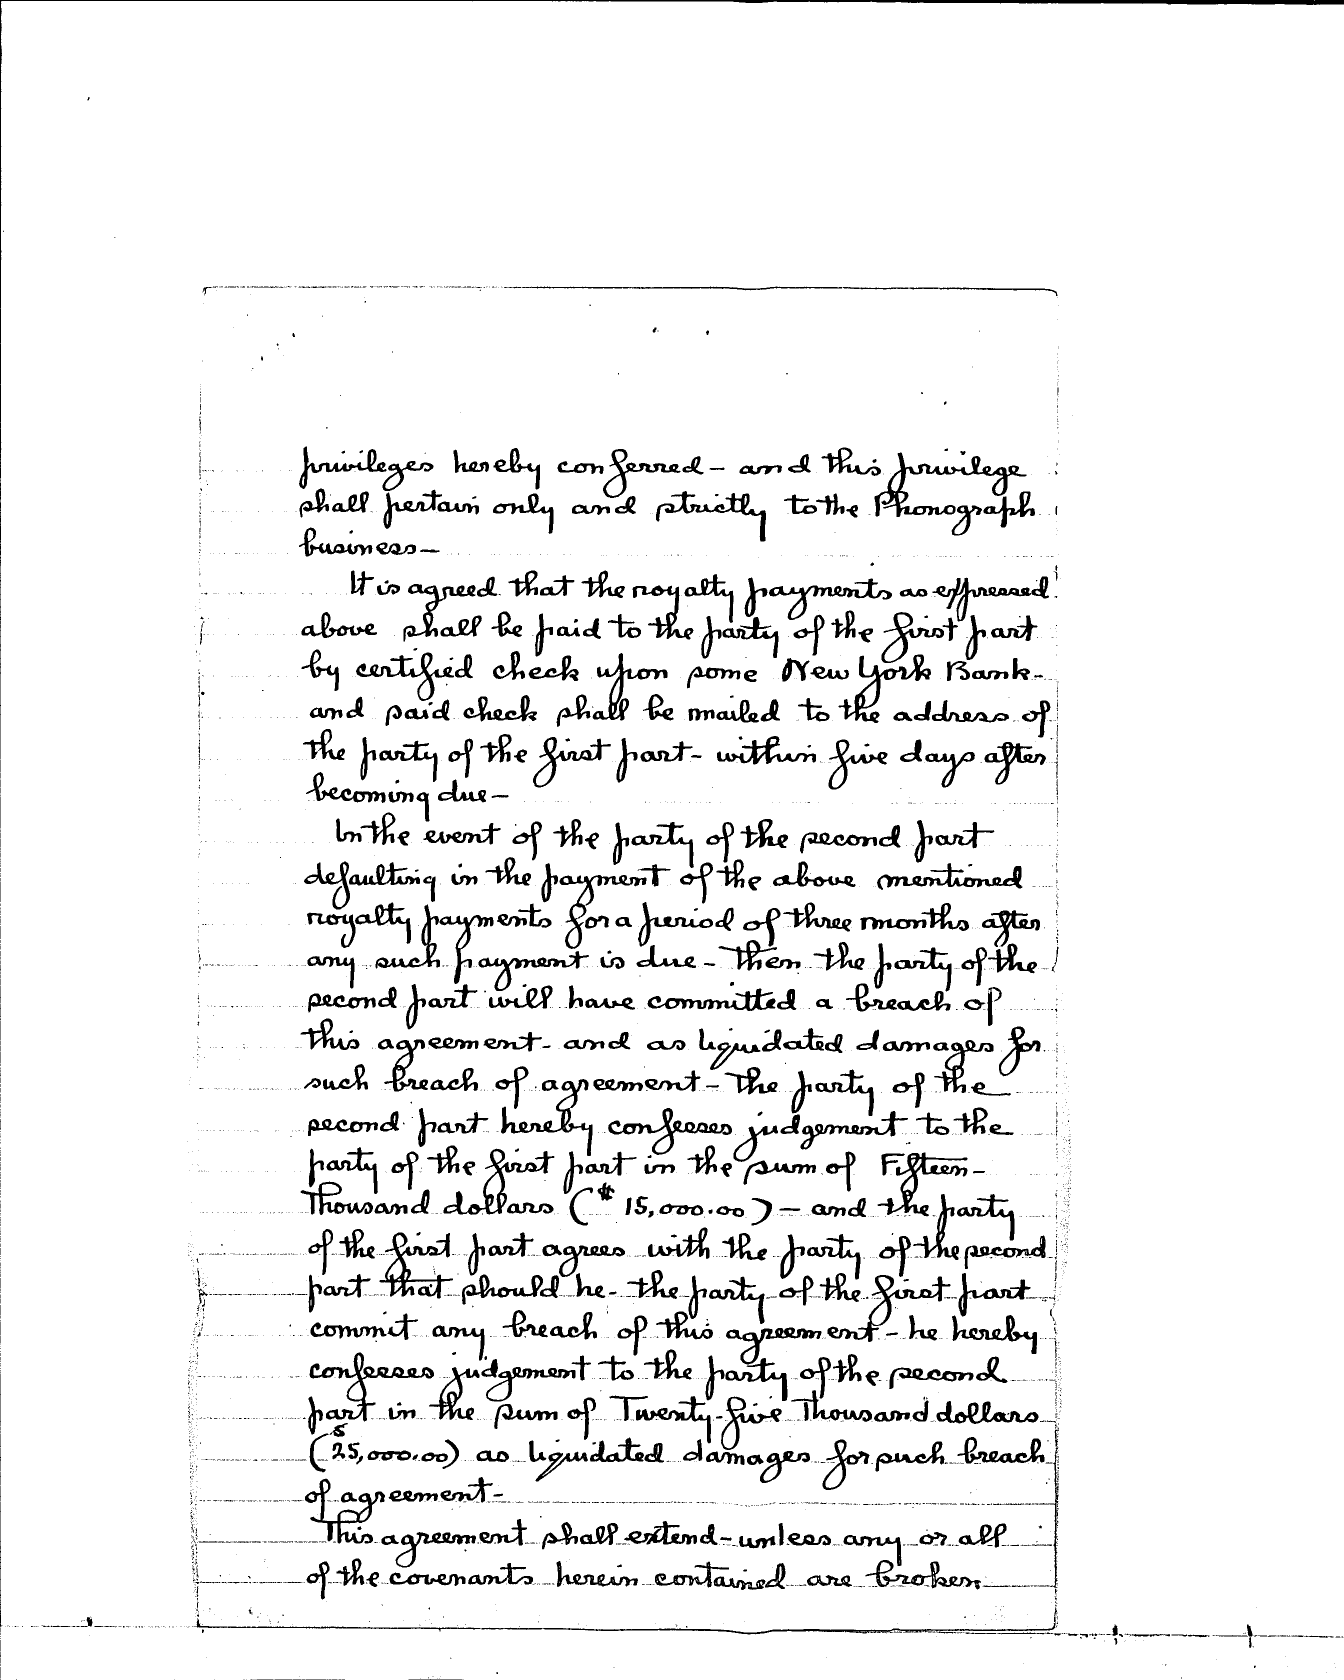 privileges hereby conferred - and this privilege
shall pertain only and strictly to the Phonograph
business -
It is agreed that the royalty payments as expressed
above shall be paid to the party of the first part
by certified check upon some New York Bank -
and said check shall be mailed to the address of
the party of the first part - within five days after
becoming due -
In the event of the party of the second part
defaulting in the payment of the above mentioned
royalty payments for a period of three months after
any such payment is due - then the party of the
second part will have committed a breach of
this agreement - and as liquidated damages for
such breach of agreement - the party of the
second part hereby confesses judgement to the
party of the first part in the sum of Fifteen -
Thousand dollars ($ 15,000.00) - and the party
of the first part agrees with the party of the second
part that should he - the party of the first part
commit any breach of this agreement - he hereby
confesses judgement to the party of the second
part in the sum of Twenty-five Thousand dollars
($25,000.00) as liquidated damages for such breach
of agreement -
This agreement shall extend - unless any or all
of the covenants herein contained are broken